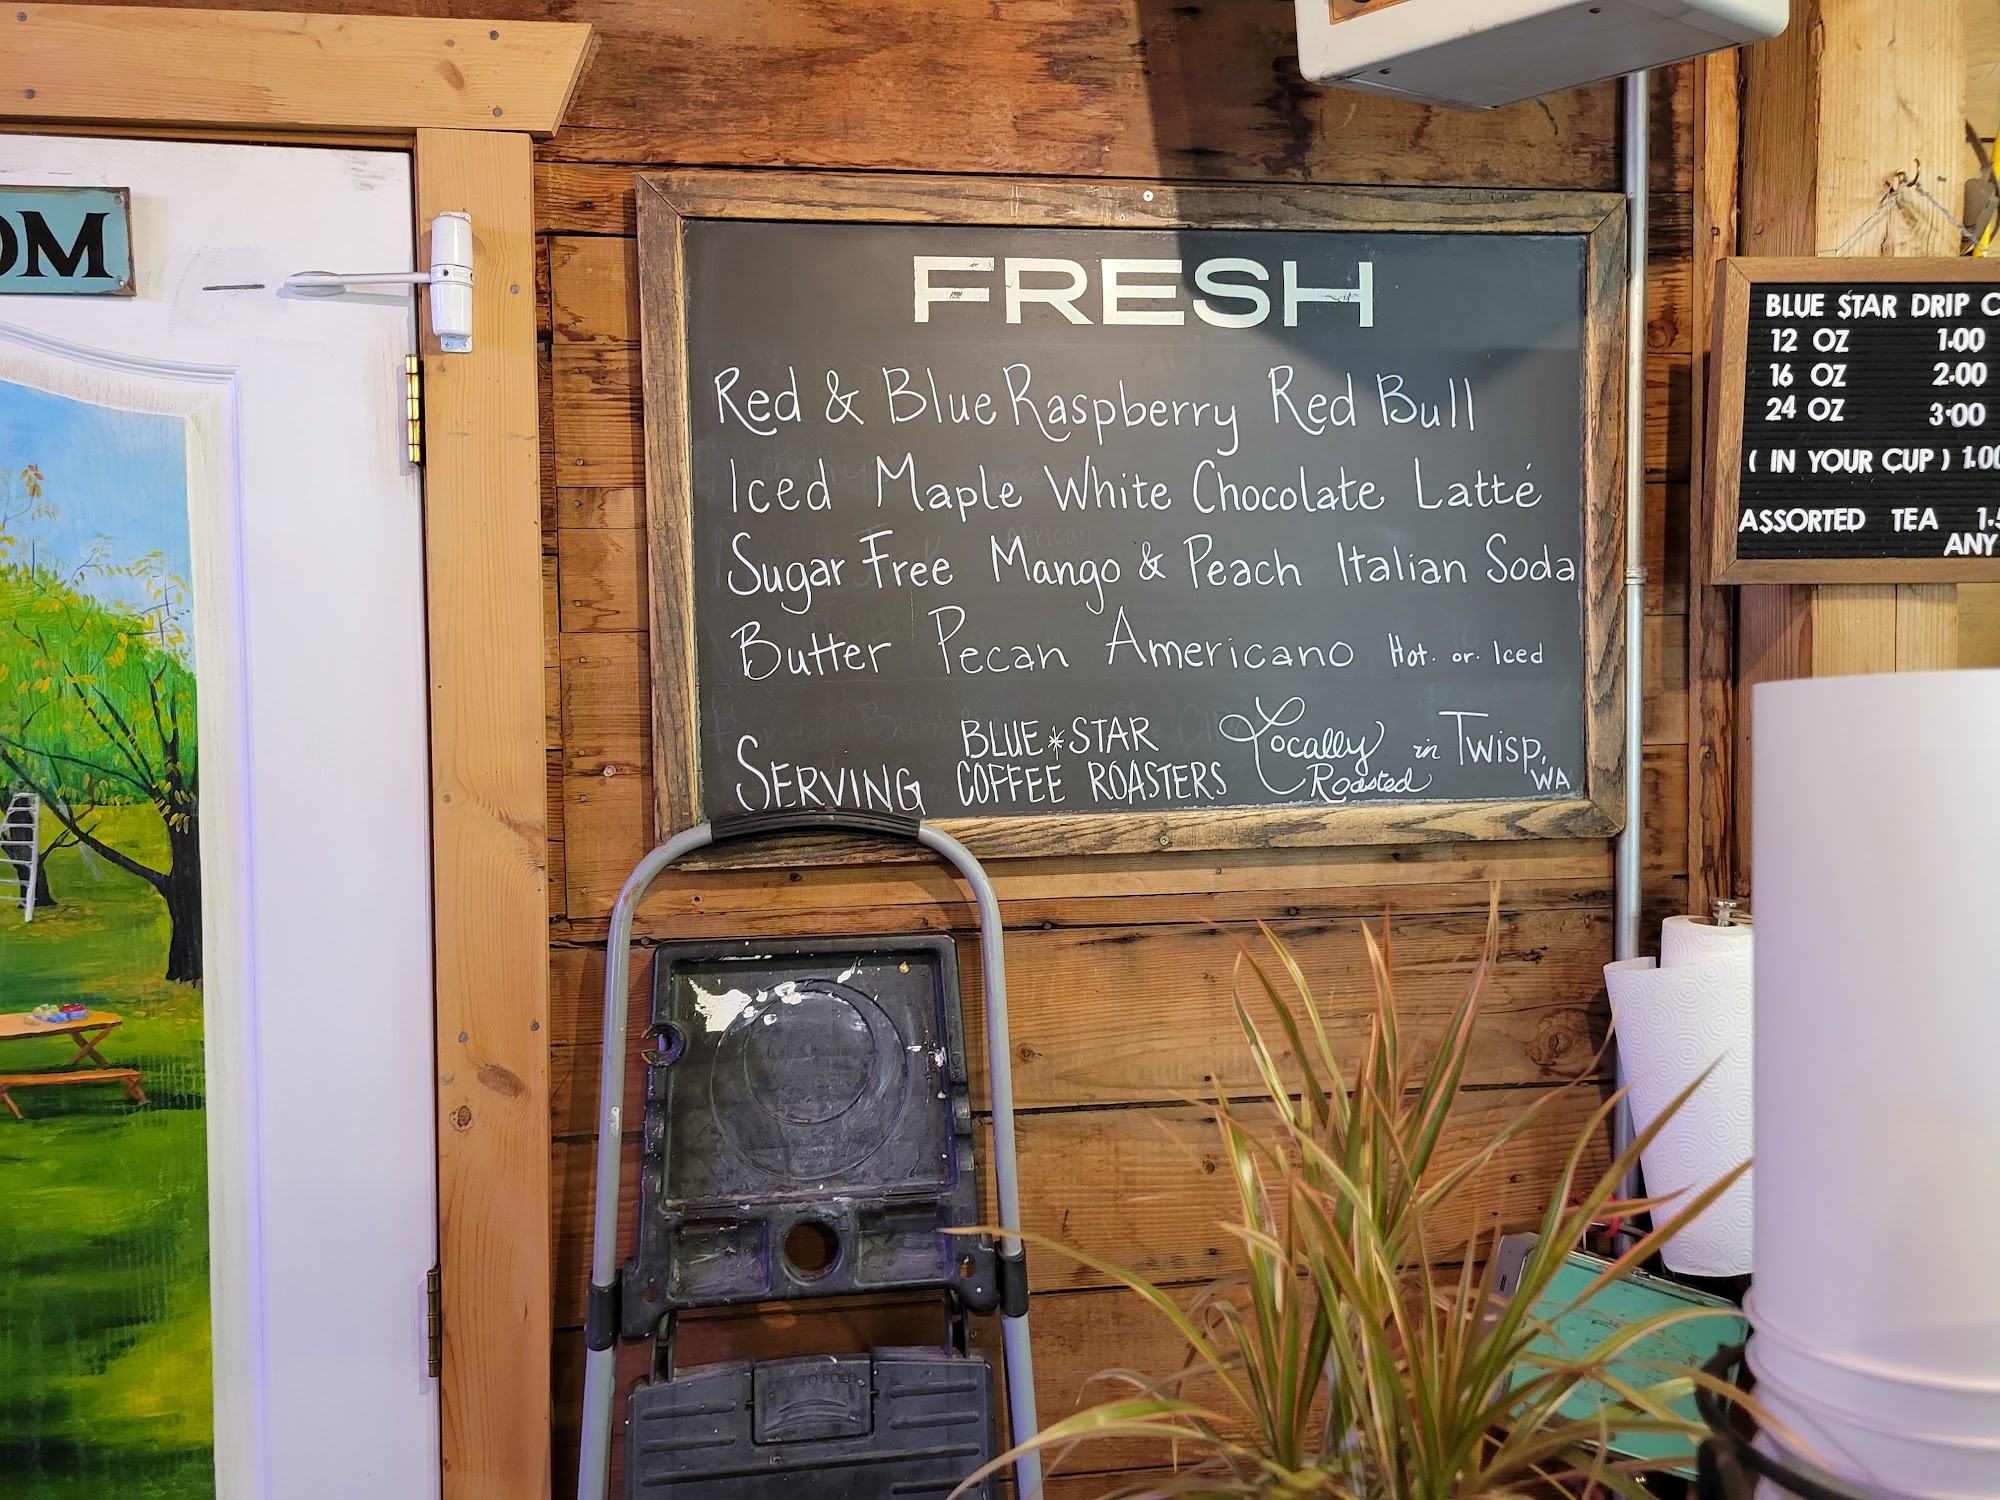 OM
FRESH
Red & Blue Raspberry Red Bull
Iced Maple White Chocolate Latté
Sugar Free Mango & Peach Italian Soda
Butter Pecan Americano Hot. or. Iced
SERVING BLUE * STAR COFFEE ROASTERS Locally Roasted in TWISP, WA
BLUE STAR DRIP C
12 OZ 1.00
16 OZ 2.00
24 OZ 3.00
( IN YOUR CUP ) 1.00
ASSORTED TEA 1.5
ANY